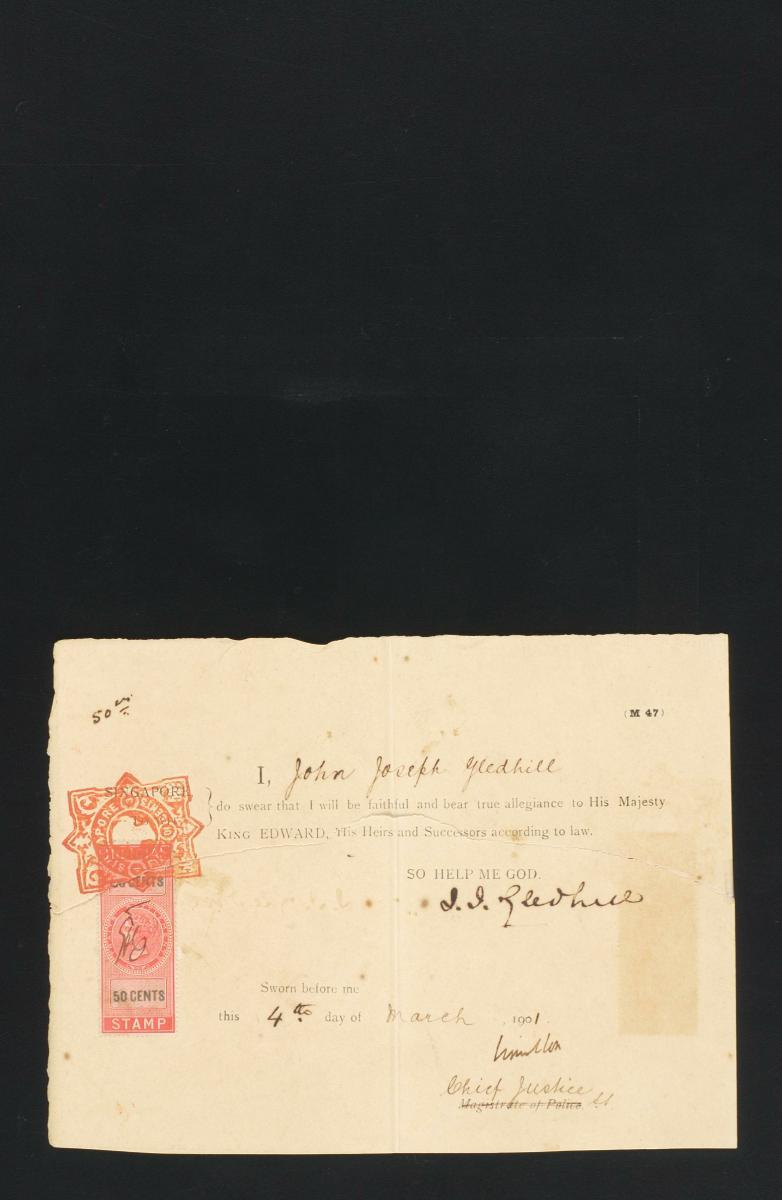 50
(M 47)
I, John Joseph Gledhill
SINGAPORE,
do swear that I will be faithful and bear true allegiance to His Majesty
KING EDWARD, His Heirs and Successors according to law.
SO HELP ME GOD.
J. J. Gledhill
50 CENTS
50 CENTS
STAMP
Sworn before me
this 4th day of March, 1901.
Chief Justice
Magistrate of Police